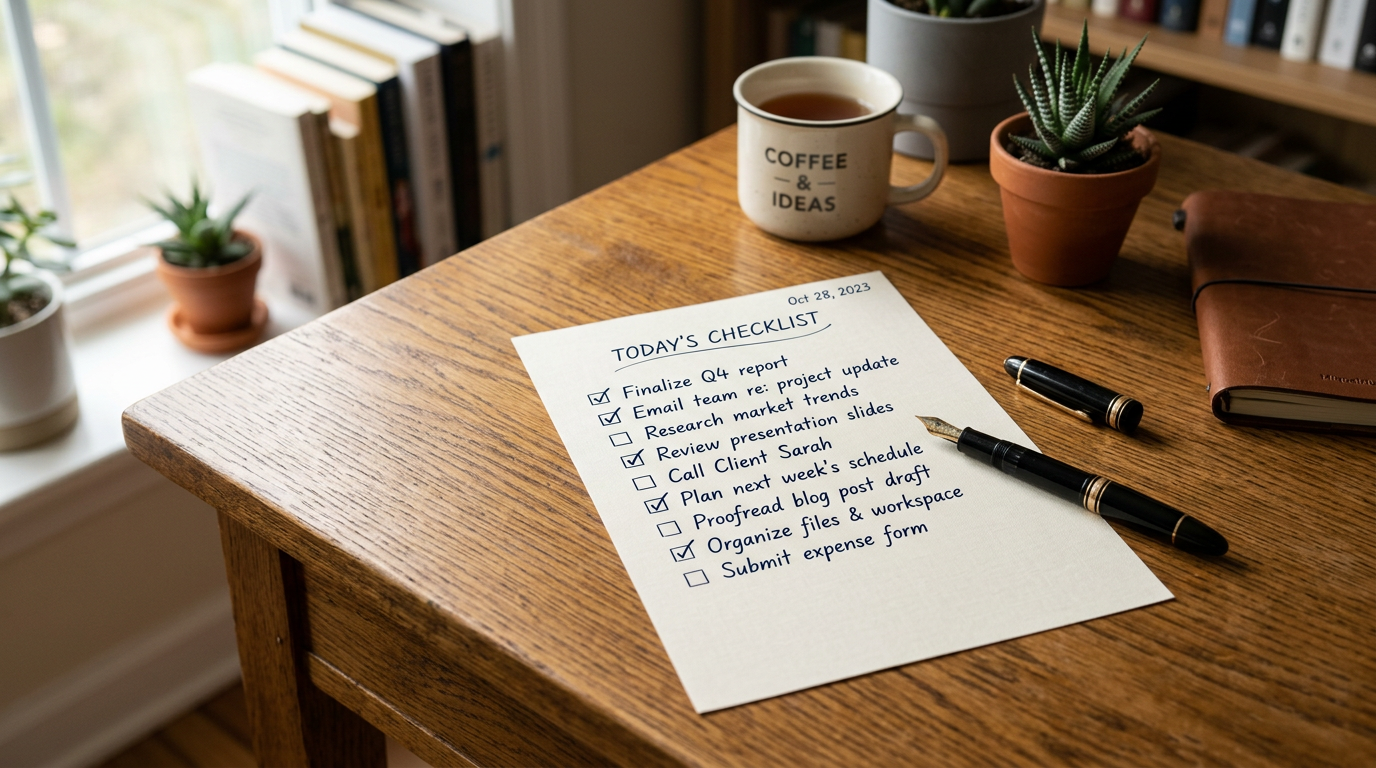 COFFEE
— & —
IDEAS
Oct 28, 2023
TODAY'S CHECKLIST
☑ Finalize Q4 report
☑ Email team re: project update
☐ Research market trends
☑ Review presentation slides
☐ Call Client Sarah
☑ Plan next week's schedule
☐ Proofread blog post draft
☑ Organize files & workspace
☐ Submit expense form